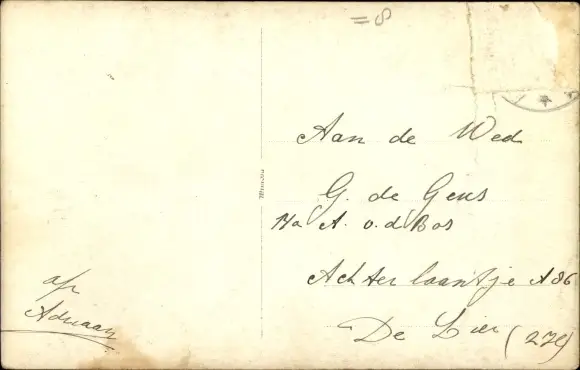 = 8
Aan de Wed
G. de Geus
A. v. d Bos
Achterlaantje A86
De Lier (
af
Adriaan